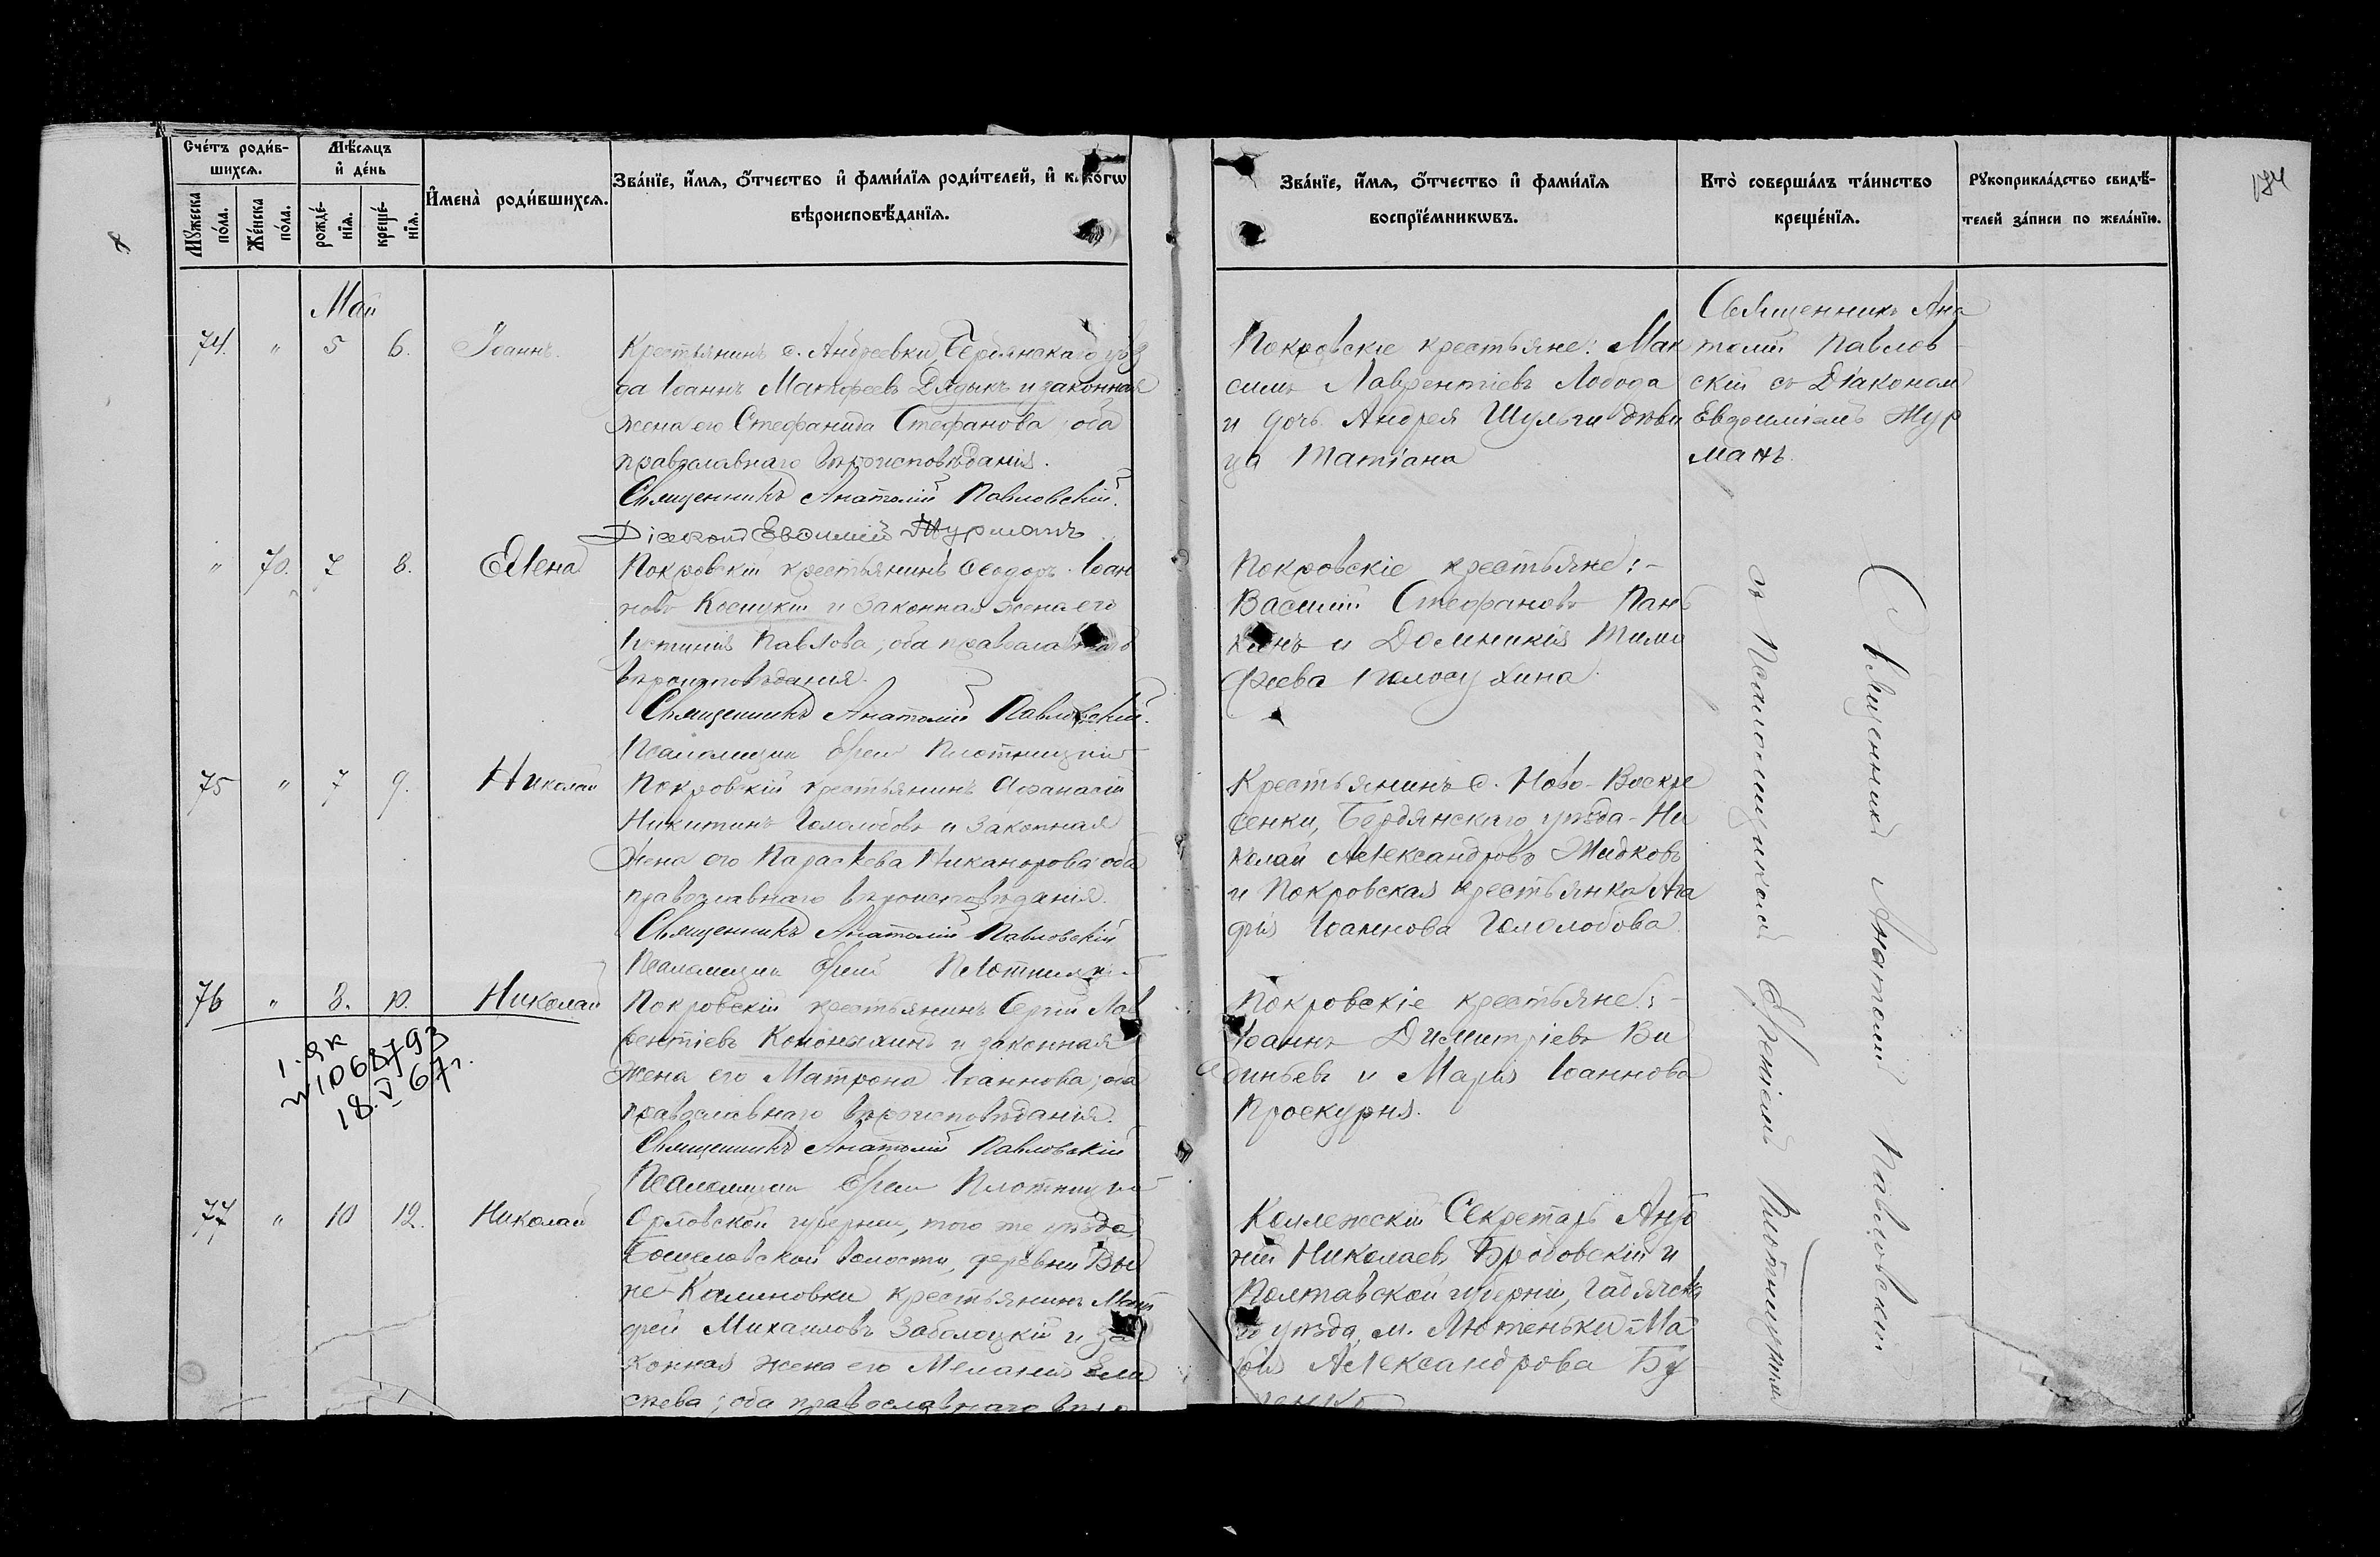 Сче́тъ роди́в-
шихсѧ.
Мѣ́сѧцъ
и҆ де́нь
Мꙋ́жеска
по́ла.
Же́нска
по́ла.
рожде́-
нїѧ.
креще́-
нїѧ.
И҆мена̀ роди́вшихсѧ.
Зва́нїе, и҆́мѧ, ѻ҆́тчество и҆ фами́лїѧ роди́телей, и҆ ко́гѡ
вѣроисповѣ́данїѧ.
Зва́нїе, и҆́мѧ, ѻ҆́тчество и҆ фами́лїѧ
воспрїе́мникѡвъ.
Кто̀ соверша́лъ та́инство
креще́нїѧ.
Рꙋкоприкла́дство свидѣ́-
телей за́писи по жела́нїю.
174
Май
74. " 5 6. Іоаннъ.
Крестьянинъ с. Андреевки, Бердянскаго уѣз
да Іоаннъ Матѳеевъ Дядыкъ и законная
жена его Стефанида Стефанова, оба
православнаго вѣроисповѣданія.
Священникъ Анатолій Павловскій.
Діаконъ Евѳимій Журманъ
Покровскіе крестьяне: Мак
симъ Лаврентіевъ Лобода
и дочь Андрея Шульги дѣви
ца Татіана
Священникъ Ана
толій Павлов-
скій съ Діакономъ
Евѳиміемъ Жур
манъ.
" 70. 7 8. Елена
Покровскій крестьянинъ Ѳеодоръ Іоан
новъ и законная жена его
Іустинія Павлова, оба православнаго
вѣроисповѣданія.
Священникъ Анатолій Павловскій.
Псаломщикъ Плотницкій
Покровскіе крестьяне:-
Василій Стефановъ Пань
кинъ и Домникія Тимо
фѣева
75 " 7 9. Николай
Покровскій крестьянинъ Аѳанасій
Никитинъ Гололобовъ и законная
жена его Параскева Никанорова оба
православнаго вѣроисповѣданія.
Священникъ Анатолій Павловскій
Псаломщикъ Плотницкій
Крестьянинъ с. Ново-Воскре
сенки, Бердянскаго уѣзда - Ни
колай Александровъ Жидковъ
и Покровская крестьянка Ага
фія Іоаннова Гололобова.
76 " 8. 10. Николай
1. ЯК
№1068793
18.V 67г.
Покровскій крестьянинъ Сергій Лав
рентіевъ Кононыхинъ и законная
жена его Матрона Іоаннова, оба
православнаго вѣроисповѣданія.
Священникъ Анатолій Павловскій
Псаломщикъ Плотницкій
Покровскіе крестьяне:-
Іоаннъ Димитріевъ Ви
диньевъ и Марія Іоаннова
Проскурня.
77 " 10 12. Николай
Орловской губерніи, того же уѣзда,
волости, деревни
Калиновки крестьянинъ Мат
ѳей Михаиловъ Заболоцкій и за
конная жена его Меланія Ели
сеева; оба православнаго вѣро
Коллежскій Секретарь Анто
ній Николаевъ Бродовскій и
Полтавской губерніи, Гадячска
го уѣзда, м. Лютеньки Ма
рія Александрова Бу
Священникъ Анатолій Павловскій
съ Псаломщикомъ Плотницкимъ